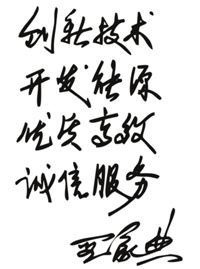 创新技术
开发能源
优质高效
诚信服务
王家典